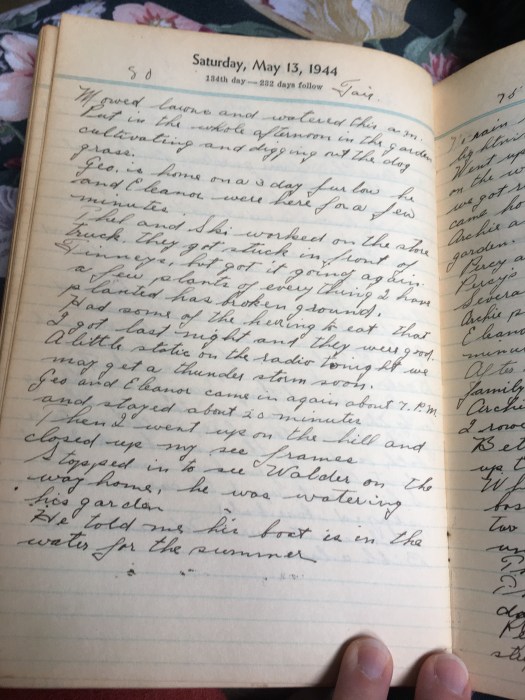 Saturday, May 13, 1944
134th day—232 days follow
80 Fair.
Mowed lawns and watered this a.m.
Put in the whole afternoon in the garden
cultivating and digging out the dog
grass.
Geo. is home on a 3 day furlow he
and Eleanor were here for a few
minutes.
and Ski worked on the store
truck. they got stuck in front of
Finneys, but got it going again.
a few plants of every thing I have
planted has broken ground.
Had some of the herring to eat that
I got last night and they were good.
A little static on the radio tonight we
may get a thunder storm soon.
Geo and Eleanor came in again about 7. P.M
and stayed about 20 minutes
Then I went up on the hill and
closed up my frames
Stopped in to see Walder on the
way home, he was watering
his garden
He told me his boat is in the
water for the summer
75
rain
Went up
on the
we got
came ho
Archie a
garden.
Percy a
Percy's
Severa
Archie
Eleano
minu
After
family
Archi
I rowe
up t
two